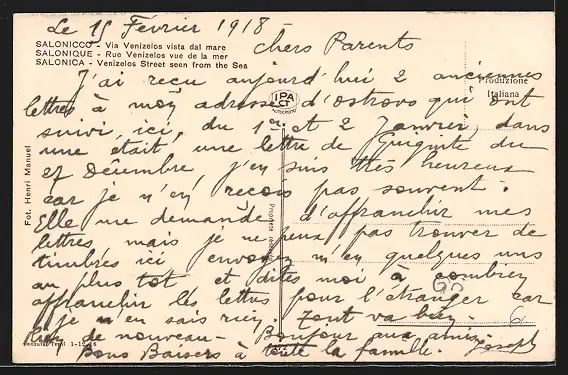 Le 15 Février 1918
Chers Parents
SALONICCO - Via Venizelos vista dal mare
SALONIQUE - Rue Venizelos vue de la mer
SALONICA - Venizelos Street seen from the Sea
Produzione
Italiana
IPA
CT
AUTOCROMO
J'ai reçu aujourd'hui 2 anciennes
lettres à mon adresse d'ostrovo qui ont
suivi, ici, du 1er et 2 Janvier, dans
une était, une lettre de du
27 Décembre, j'en suis très heureux
car je n'en reçois pas souvent.
Elle me demande d'affranchir mes
lettres, mais je ne peux pas trouver de
timbres ici envoyez m'en quelques uns
au plus tôt et dites moi à combien
affranchir les lettres pour l'étranger car
je n'en sais rien. Tout va bien.
Rien de nouveau - Bonjour aux amis.
Bons Baisers à toute la famille. Joseph
Fot. Henri Manuel
6